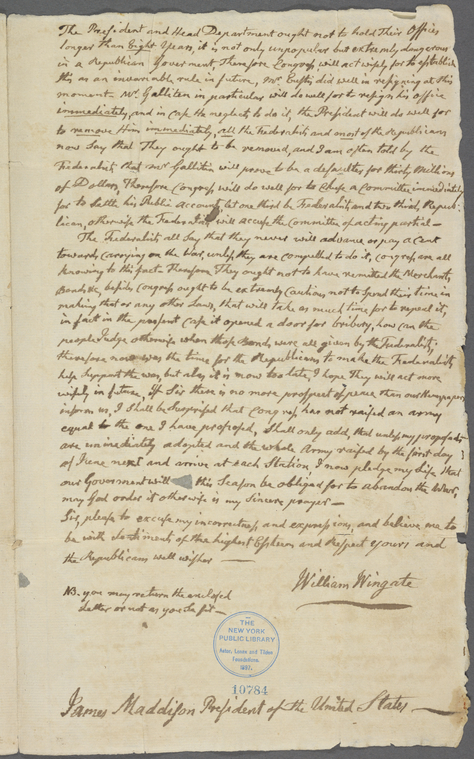 The President and Head Department ought not to hold Their Offices
longer than Eight Years, it is not only unpopular but extremely dangerous
in a Republican Government, Therefore Congress will act wisely for to establish
this as an invariable rule in future, Mr. Eustis did well in resigning at this
moment. Mr. Galliten in particular will do well for to resign his office
immediately, and in case He neglects to do it, the President will do well for
to remove Him immediately, all the Federalists and most of the Republicans
now Say that They ought to be removed, and I am often told by the
Federalists that Mr Galliten will prove to be a defaulter for thirty Millions
of Dollars, Therefore Congress will do well for to Chuse a Committee immediately
for to Settle his Public Accounts, but one third be Federalists and two third, Repub-
lican, otherwise the Federalists will accuse the Committee of acting partial —
The Federalists all Say that they never will advance or pay a Cent
towards carrying on the War, unless they are compelled to do it, Congress are all
knowing to this fact. Therefore They ought not to have remitted the Merchants,
Bonds &c, besides Congress ought to be extremely Cautious not to Spend their time in
making that or any other Laws, that will take as much time for to repeal it,
in fact in the present Case it opened a door for bribery, how can the
people Judge otherwise when those Bonds were all given by the Federalists;
therefore now was the time for the Republicans to make the Federalists
help Support the War, but alas, it is now too late, I hope They will act more
wisely in future, If Sir there is no more prospect of peace than our Newspapers
inform us, I Shall be Surprised that Congress has not raised an army
equal to the one I have proposed, Shall only add, that unless my proposals
are immediately adopted and the whole Army raised by the first day
of June next and arrive at each Station, I now pledge my Life, that
our Government will this Season be obliged for to abandon the War,
may God order it otherwise is my Sincere prayer —
Sir, please to excuse my incorrectness and expressions, and believe me to
be with Sentiments of the highest Esteem and Respect Yours and
the Republicans well wisher —
William Wingate
NB. you may return the enclosed
Letter or not as you See fit —
THE
NEW YORK
PUBLIC LIBRARY
Astor, Lenox and Tilden
Foundations.
1897.
10784
James Maddison President of the United States —